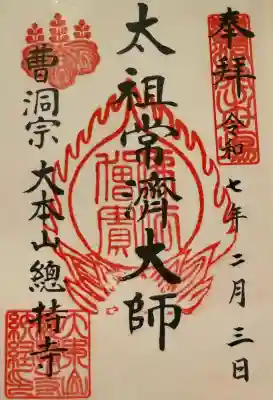 奉拝
令和七年二月三日
太祖常濟大師
曹洞宗大本山總持寺
佛法僧寶